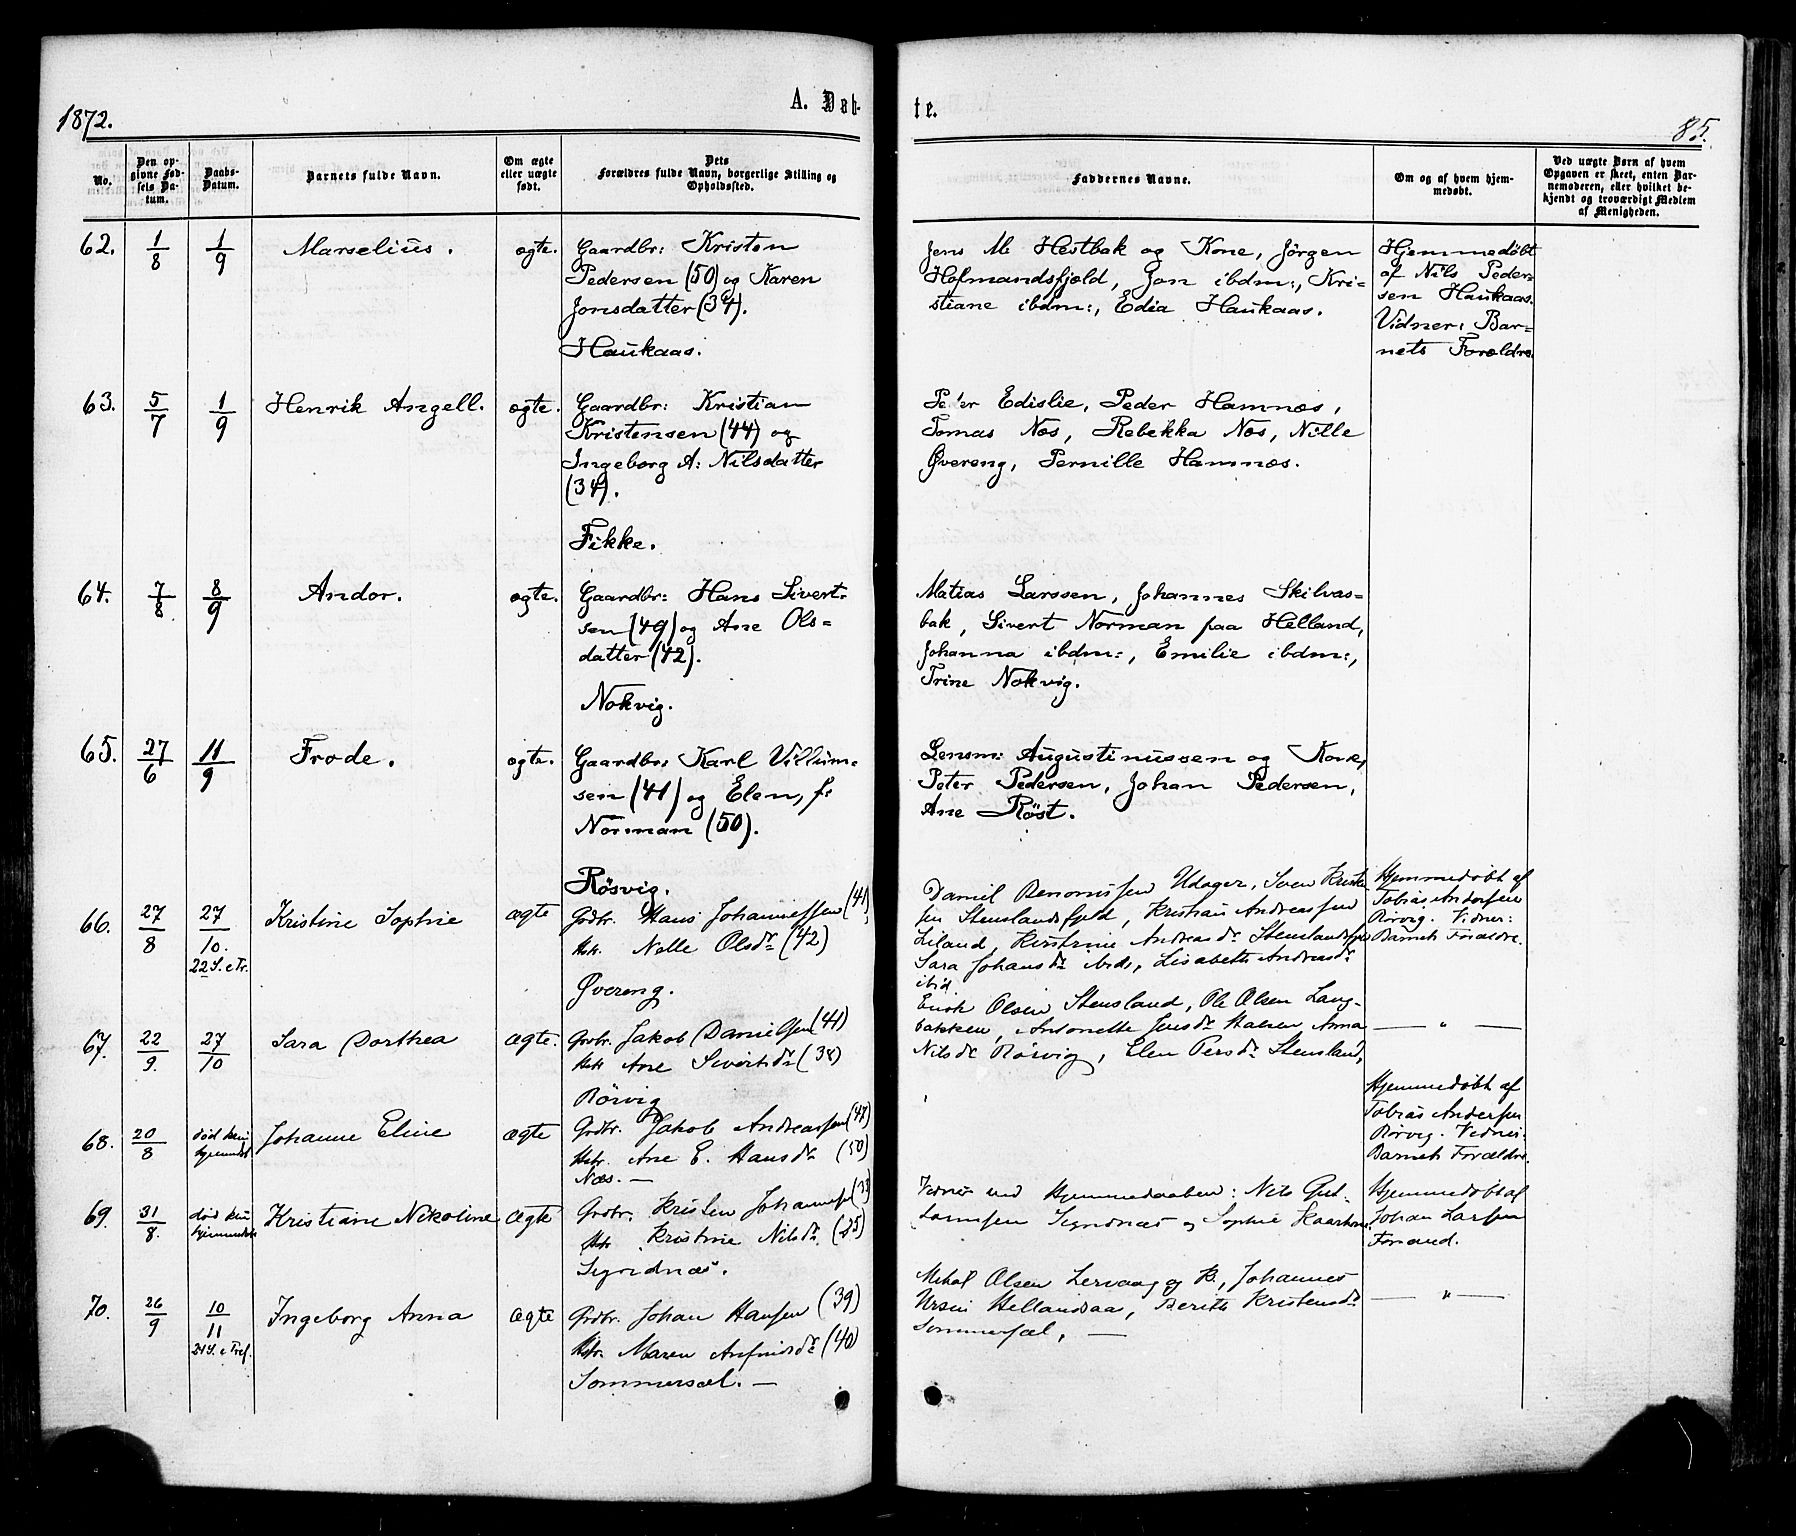 1872.
A. Døb-
te.
85.
No.
Den op-
givne Fød-
sels Da-
tum.
Daabs-
Datum.
Barnets fulde Navn.
Om ægte
eller uægte
født.
Dets
Forældres fulde Navn, borgerlige Stilling og
Opholdssted.
Faddernes Navne.
Om og af hvem hjem-
medøbt.
Ved uægte Børn af hvem
Opgaven er skeet, enten Bar-
nemoderen, eller hvilket be-
kjendt og troværdigt Medlem
af Menigheden.
62. 1/8 1/9 Marselius. ægte. Gaardbr: Kristen
Pedersen (50) og Karen
Jonsdatter (34).
Haukaas.
Jens M. Hestbak og Kone, Jörgen
Hofmandsfjæld, Jon ibdm:, Kri-
stiane ibdm:, Edia Haukaas.
Hjemmedøbt
af Nils Peder-
sen Haukaas.
Vidner: Bar-
nets Forældre.
63. 5/7 1/9 Henrik Angell. ægte. Gaardbr: Kristian
Kristensen (44) og
Ingeborg A: Nilsdatter
(34).
Fikke.
Peter Edislie, Peder Hamnæs,
Tomas Næs, Rebekka Næs, Nille
Øvereng, Pernille Hamnæs.
64. 7/8 8/9 Andor. ægte. Gaardbr: Hans Sivert-
sen (49) og Ane Ols-
datter (42).
Nokvig.
Matias Larssen, Johannes Skilvas-
bak, Sivert Norman paa Helland,
Johanna ibdm:, Emilie ibdm:,
Trine Nokvig.
65. 27/6 11/9 Frode. ægte. Gaardbr: Karl Villum-
sen (41) og Elen, f:
Norman (50).
Rösvig.
Lensm: Augustinussen og Kone,
Peter Pedersen, Johan Pedersen,
Ane Röst.
66. 27/8 27/10. 22 S. e Tr. Kristine Sophie ægte Grdbr. Hans Johannessen (41)
Hstr. Nelle Olsdr (42)
Øvereng.
Daniel Benonissen Udager, Sven Kristen
sen Stenslandsfjeld, Kristian Andreassen
Liland, Kirstine Andreasdr Stenslandsfjeld
Sara Johansdr ibid:, Lisabeth Andreasdr
ibid.
Hjemmedøbt af
Tobias Andersen
Rörvig. Vidner:
Barnets Forældre.
67. 22/9. 27/10 Sara Dorthea ægte. Grdbr. Jakob Danielsen (41)
Hstr Ane Sivertsdr (38)
Rörvig
Erik Olsen Stensland, Ole Olsen Lang-
bakken, Antonette Jensdr Anna
Nilsdr Rörvig, Elen Persdr Stensland,
— " —
68. 20/8 død Johanne Eline ægte Grdbr. Jakob Andreassen (47)
Hstr. Ane E. Hansdr (50)
Næs. —
Hjemmedøbt af
Tobias Andersen
Rörvig. Vidner:
Barnets Forældre.
69. 31/8. død Kristiane Nikoline ægte Grdbr. Kristen Johannes
Hstr Kristine Nilsdr. (25)
Segndnæs.
Vidner ved Hjemmedaaben: Nils
Segndnæs og Sophie
Hjemmedøbt af
Johan Larsen
70. 26/9 10/11 24 S. e Tref. Ingeborg Anna ægte Grdbr. Johan Hansen (39)
Hstr. Maren Arfindsdr (40)
Sommersæl. —
Mikal Olsen Lervaag og K., Johannes
Ursin Hellandsaa, Berith Kristensdr
Sommersæl, —
— " —